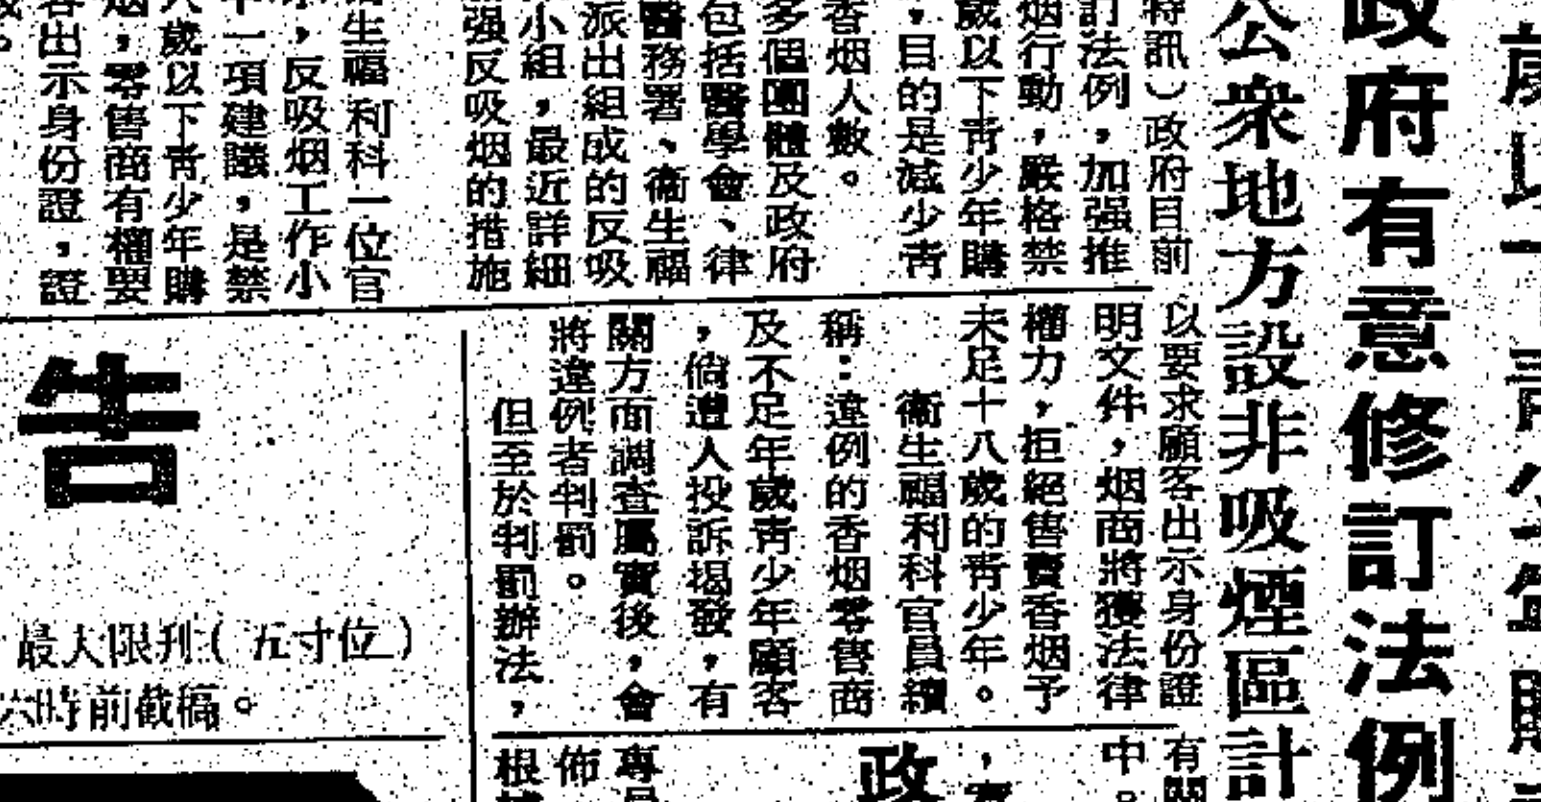 政府有意修訂法例
公衆地方設非吸煙區計
特訊）政府目前
訂法例，加强推
烟行動，嚴格禁
歲以下靑少年購
，目的是減少靑
香烟人數。
多個團體及政府
包括醫學會、律
醫務署、衞生福
派出組成的反吸
小組，最近詳細
强反吸烟的措施
生福利科一位官
，反吸烟工作小
一項建議，是禁
歲以下靑少年購
烟，零售商有權要
客出示身份證，證
以要求顧客出示身份證
明文件，烟商將獲法律
權力，拒絕售賣香烟予
未足十八歲的靑少年。
衞生福利科官員續
稱：違例的香烟零售商
及不足年歲靑少年顧客
，倘遭人投訴揭發，有
關方面調查屬實後，會
將違例者判罰。
但至於判罰辦法，
告
最大限刋（五寸位）
六時前截稿。
有關
中。
政
專員
佈
根